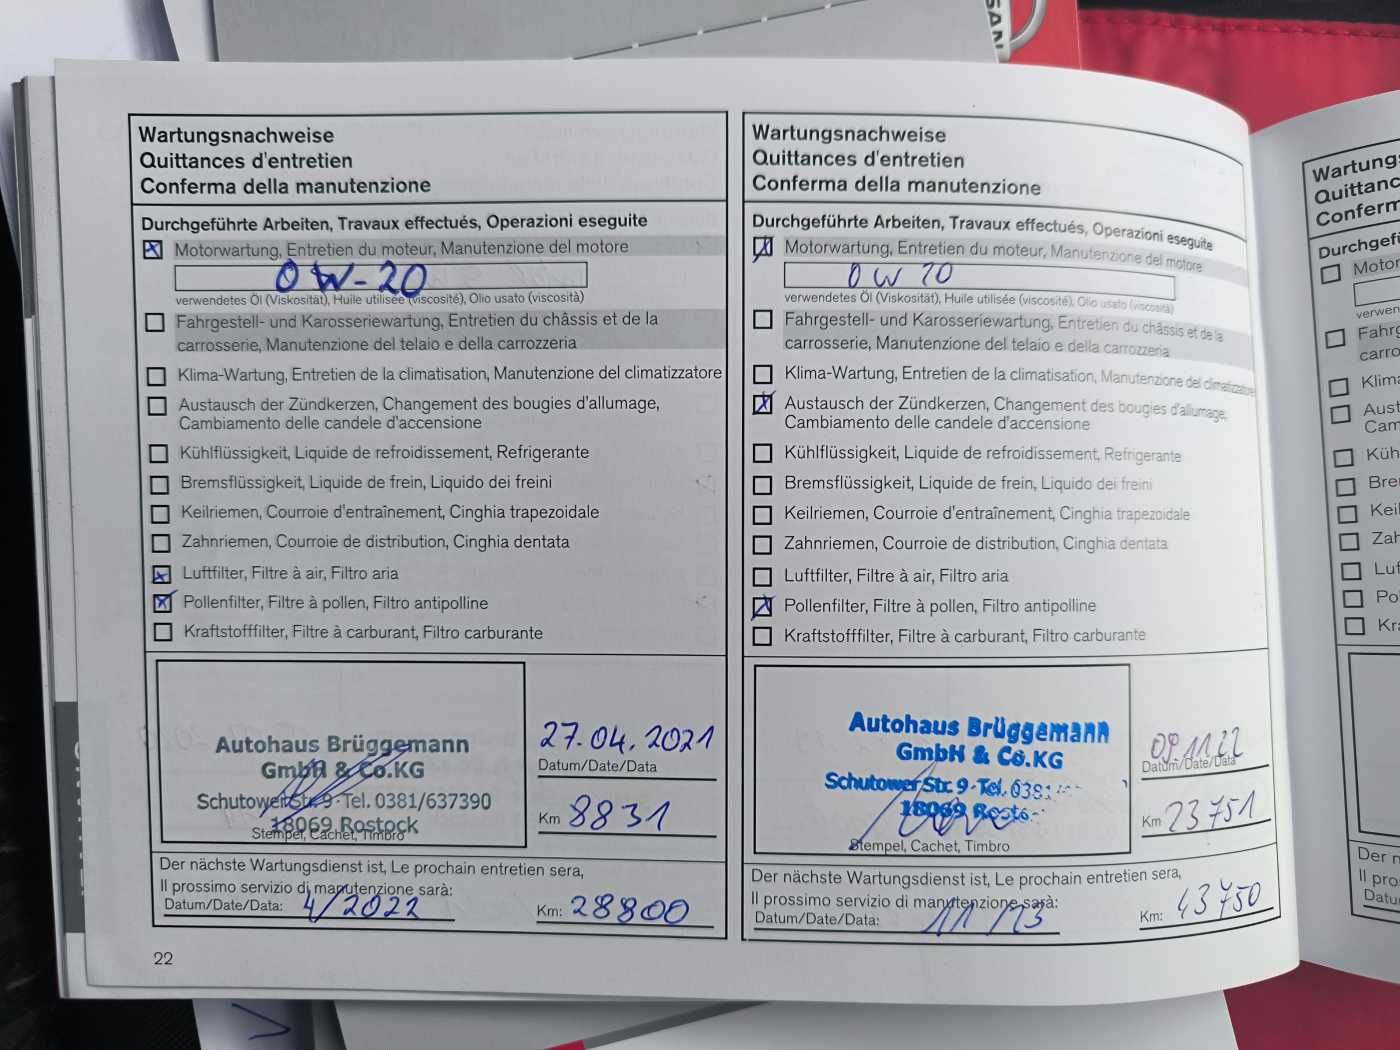 SAN
Wartungsnachweise
Quittances d'entretien
Conferma della manutenzione
Durchgeführte Arbeiten, Travaux effectués, Operazioni eseguite
Motorwartung, Entretien du moteur, Manutenzione del motore
0W-20
verwendetes Öl (Viskosität), Huile utilisée (viscosité), Olio usato (viscosità)
Fahrgestell- und Karosseriewartung, Entretien du châssis et de la
carrosserie, Manutenzione del telaio e della carrozzeria
Klima-Wartung, Entretien de la climatisation, Manutenzione del climatizzatore
Austausch der Zündkerzen, Changement des bougies d'allumage,
Cambiamento delle candele d'accensione
Kühlflüssigkeit, Liquide de refroidissement, Refrigerante
Bremsflüssigkeit, Liquide de frein, Liquido dei freini
Keilriemen, Courroie d'entraînement, Cinghia trapezoidale
Zahnriemen, Courroie de distribution, Cinghia dentata
Luftfilter, Filtre à air, Filtro aria
Pollenfilter, Filtre à pollen, Filtro antipolline
Kraftstofffilter, Filtre à carburant, Filtro carburante
Autohaus Brüggemann
GmbH & Co.KG
Schutower Str. 9 · Tel. 0381/637390
18069 Rostock
Stempel, Cachet, Timbro
27.04.2021
Datum/Date/Data
Km 8831
Der nächste Wartungsdienst ist, Le prochain entretien sera,
Il prossimo servizio di manutenzione sarà:
Datum/Date/Data: 4/2022
Km: 28800
22
Wartungsnachweise
Quittances d'entretien
Conferma della manutenzione
Durchgeführte Arbeiten, Travaux effectués, Operazioni eseguite
Motorwartung, Entretien du moteur, Manutenzione del motore
0W20
verwendetes Öl (Viskosität), Huile utilisée (viscosité), Olio usato (viscosità)
Fahrgestell- und Karosseriewartung, Entretien du châssis et de la
carrosserie, Manutenzione del telaio e della carrozzeria
Klima-Wartung, Entretien de la climatisation, Manutenzione del climatizzatore
Austausch der Zündkerzen, Changement des bougies d'allumage,
Cambiamento delle candele d'accensione
Kühlflüssigkeit, Liquide de refroidissement, Refrigerante
Bremsflüssigkeit, Liquide de frein, Liquido dei freini
Keilriemen, Courroie d'entraînement, Cinghia trapezoidale
Zahnriemen, Courroie de distribution, Cinghia dentata
Luftfilter, Filtre à air, Filtro aria
Pollenfilter, Filtre à pollen, Filtro antipolline
Kraftstofffilter, Filtre à carburant, Filtro carburante
Autohaus Brüggemann
GmbH & Co.KG
Schutower Str. 9 · Tel. 0381
18069 Rosto
Stempel, Cachet, Timbro
09.11.22
Datum/Date/Data
Km 23751
Der nächste Wartungsdienst ist, Le prochain entretien sera,
Il prossimo servizio di manutenzione sarà:
Datum/Date/Data: 11/23
Km: 43750
Wartungs
Quittanc
Conferm
Durchgef
Motor
verwen
Fahrg
carro
Klima
Aust
Cam
Küh
Bre
Keil
Zah
Luf
Po
Kr
Der n
Il pro
Datu